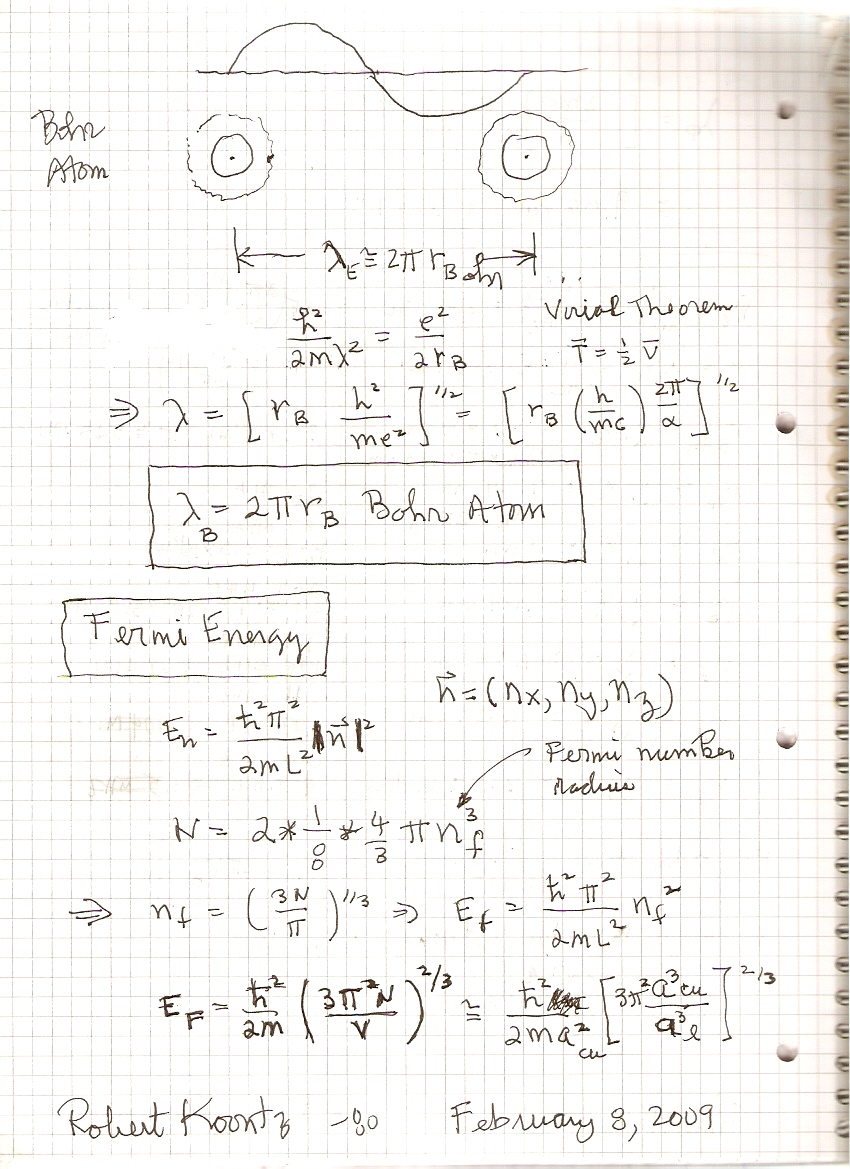 Bohr
Atom
λ_E ≅ 2π r_Bohr
ħ²/2mλ² = e²/2r_B
Virial Theorem
T̄ = ½ V̄
⇒ λ = [ r_B h²/me² ]^1/2 = [ r_B (h/mc) 2π/α ]^1/2
λ_B = 2π r_B Bohr Atom
Fermi Energy
n⃗ = (nx, ny, nz)
E_n = ħ²π²/2mL² |n⃗|²
Fermi number
radius
N = 2 * 1/8 * 4/3 π n_f³
⇒ n_f = (3N/π)^1/3 ⇒ E_f = ħ²π²/2mL² n_f²
E_F = ħ²/2m (3π²N/V)^2/3 ≅ ħ²/2ma²_cu [3π² a³cu/a³e]^2/3
Robert Koontz February 8, 2009